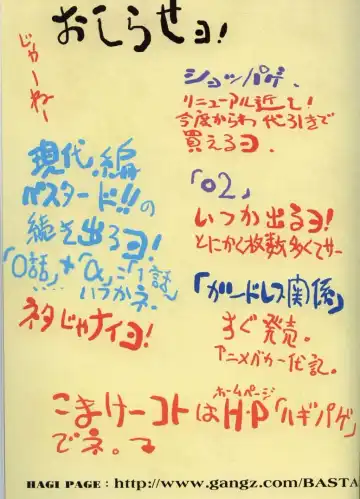 おしらせヨ!
じゃーねー
ショッパゲ、
リニューアル近して!
今度からわ代引きで
買えるヨ.
現代編
バスタード!!の
続き出るヨ!
「0話」+「α」=「1話」
いつかネ.
ネタじゃナイヨ!
「02」
いつか出るヨ!
とにかく枚数多くてサー
「ガンドレス関係」
すぐ発売。
アニメバカ一代記。
こまけーコトは
ホームページ
H・P「ハギパゲ」
でネ。
HAGI PAGE : http://www.gangz.com/BASTA